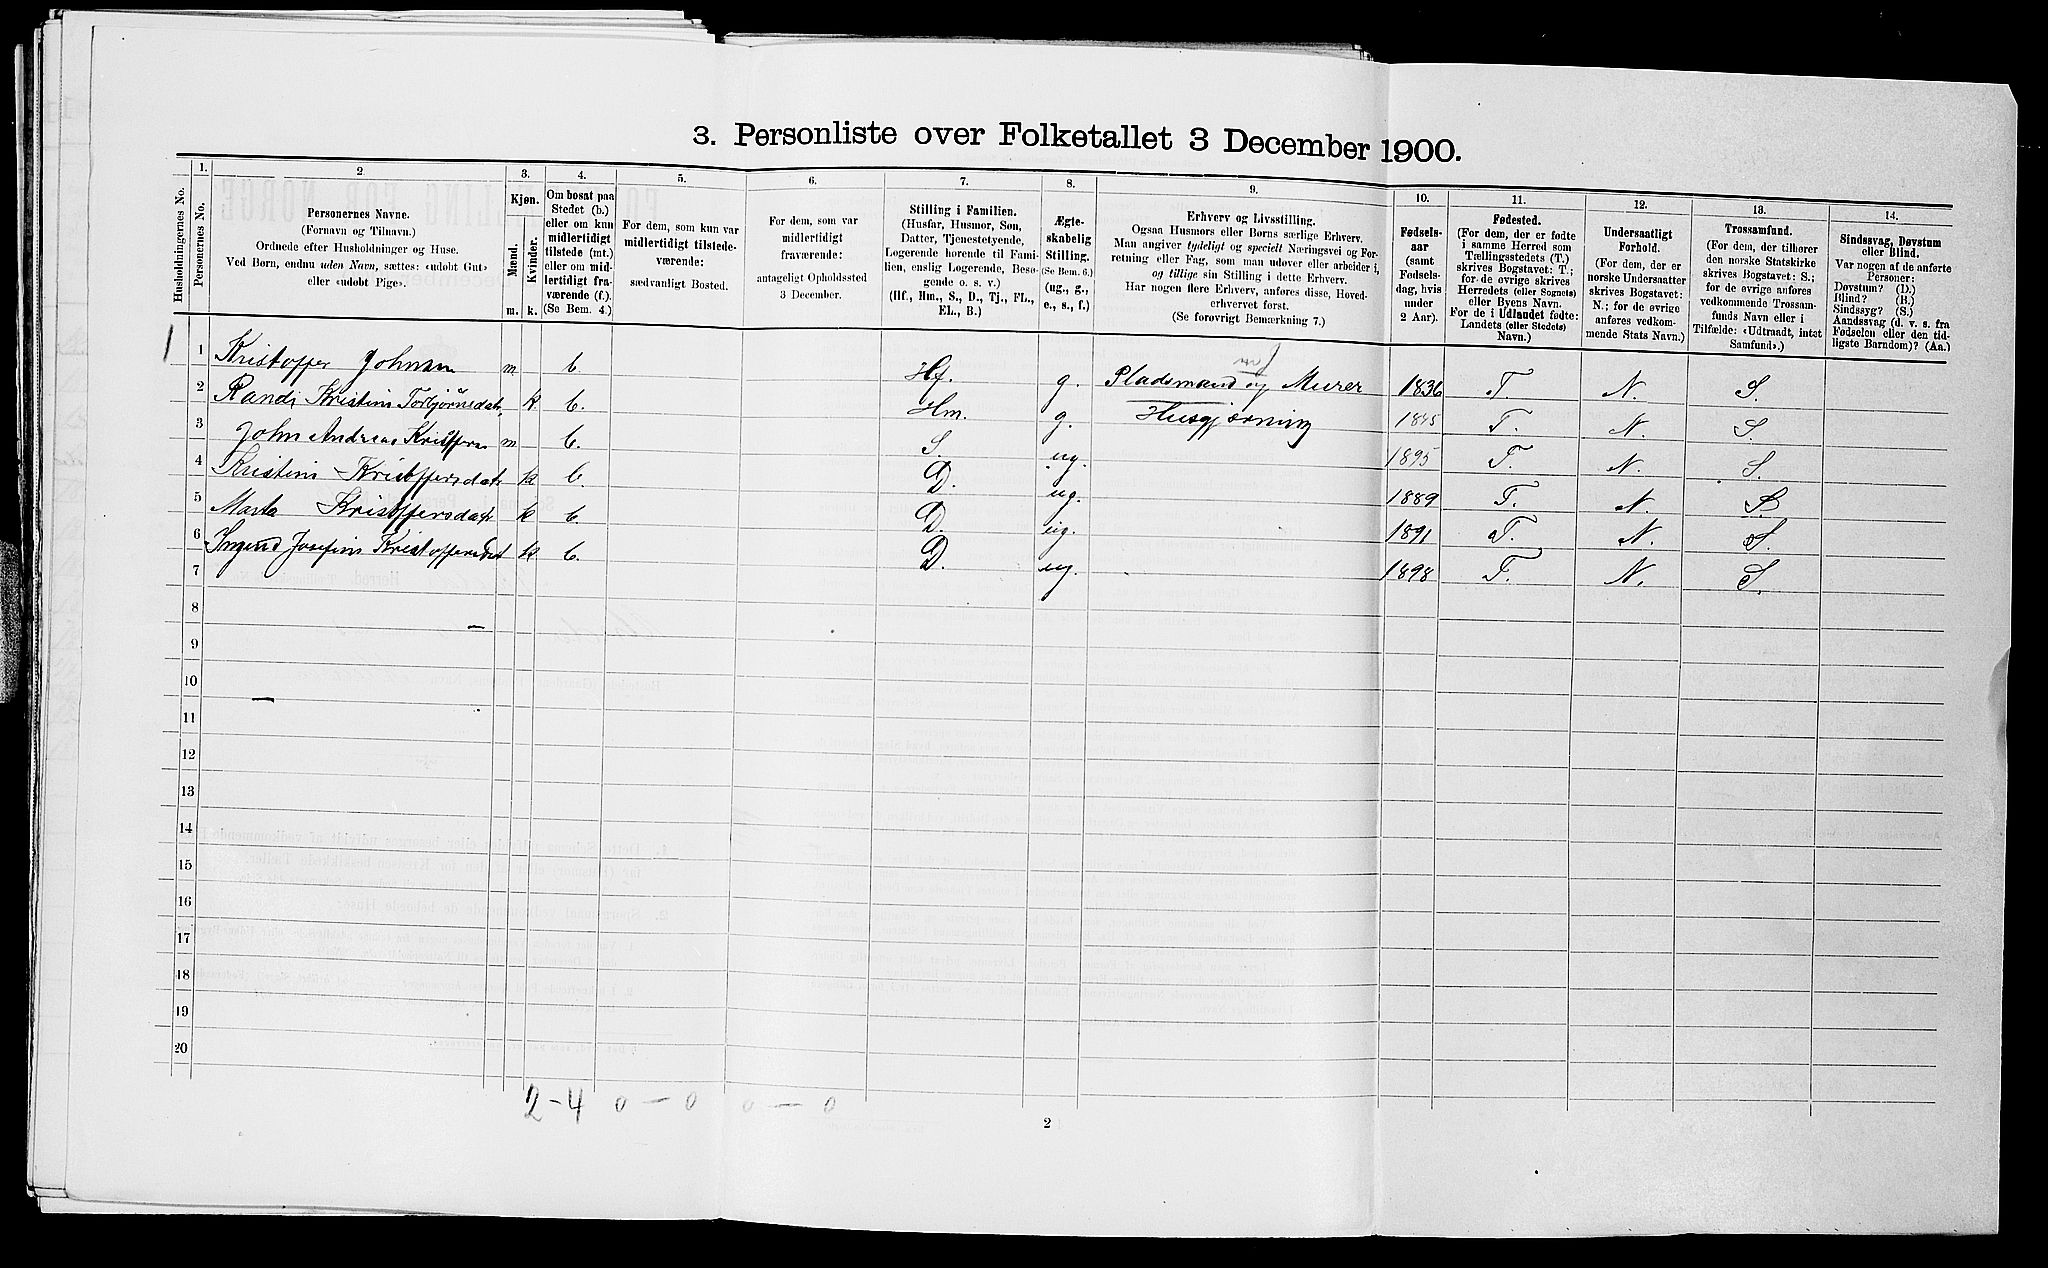 3. Personliste over Folketallet 3 December 1900.
1. 2. 3. 4. 5. 6. 7. 8. 9. 10. 11. 12. 13. 14.
Husholdningernes No.
Personernes No.
Personernes Navne.
(Fornavn og Tilnavn.)
Ordnede efter Husholdninger og Huse.
Ved Børn, endnu uden Navn, sættes: «udøbt Gut»
eller «udøbt Pige».
Kjøn.
Mænd. Kvinder.
m. k.
Om bosat paa
Stedet (b.)
eller om kun
midlertidigt
tilstede (mt.)
eller om mid-
lertidigt fra-
værende (f.)
(Se Bem. 4.)
For dem, som kun var
midlertidigt tilstede-
værende:
sædvanligt Bosted.
For dem, som var
midlertidigt
fraværende:
antageligt Opholdssted
3 December.
Stilling i Familien.
(Husfar, Husmor, Søn,
Datter, Tjenestetyende,
Logerende hørende til Fami-
lien, enslig Logerende, Besø-
gende o. s. v.)
(Hf., Hm., S., D., Tj., FL.,
EL., B.)
Ægte-
skabelig
Stilling.
(Se Bem. 6.)
(ug., g.,
e., s., f.)
Erhverv og Livsstilling.
Ogsaa Husmors eller Børns særlige Erhverv.
Man angiver tydeligt og specielt Næringsvei og For-
retning eller Fag, som man udøver eller arbeider i,
og tillige sin Stilling i dette Erhverv.
Har nogen flere Erhverv, anføres disse, Hoved-
erhvervet først.
(Se forøvrigt Bemærkning 7.)
Fødsels-
aar
(samt
Fødsels-
dag, hvis
under
2 Aar).
Fødested.
(For dem, der er fødte
i samme Herred som
Tællingsstedets (T.)
skrives Bogstavet: T.;
for de øvrige skrives
Herredets (eller Sognets)
eller Byens Navn.
For de i Udlandet fødte:
Landets (eller Stedets)
Navn.)
Undersaatligt
Forhold.
(For dem, der er
norske Undersaatter
skrives Bogstavet:
N.; for de øvrige
anføres vedkom-
mende Stats Navn.)
Trossamfund.
(For dem, der tilhører
den norske Statskirke
skrives Bogstavet: S.;
for de øvrige anføres
vedkommende Trossam-
funds Navn eller i
Tilfælde: «Udtraadt, intet
Samfund».)
Sindssvag, Døvstum
eller Blind.
Var nogen af de anførte
Personer:
Døvstum? (D.)
Blind? (B.)
Sindssyg? (S.)
Aandssvag (d. v. s. fra
Fødselen eller den tid-
ligste Barndom)? (Aa.)
1 1 Kristoffer Johnsen m. b. Hf. g. Pladsmand og Murer 1836 T. N. S.
2 Randi Kristine Torbjørnsdatr. k. b. Hm. g. Husgjerning 1845 T. N. S.
3 John Andreas Kristoffersen m b. S. ug. 1895 T. N. S.
4 Kristine Kristoffersdatr k b. D. ug. 1889 T. N. S.
5 Marta Kristoffersdatr k b. D. ug. 1891 T. N. S.
6 Josefine Kristoffersdat k b. D. ug. 1898 T. N. S.
7
8
9
10
11
12
13
14
15
16
17
18
19
20
2-4 0-0 0-0
2